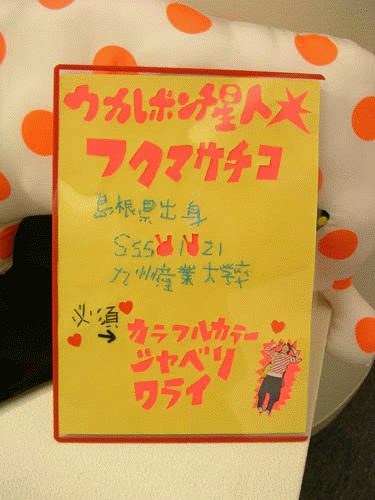 ウカレポンチ星人
フクマサチコ
島根県出身
九州産業大学卒
必須→
カラフルカラー
シャベリ
ワライ